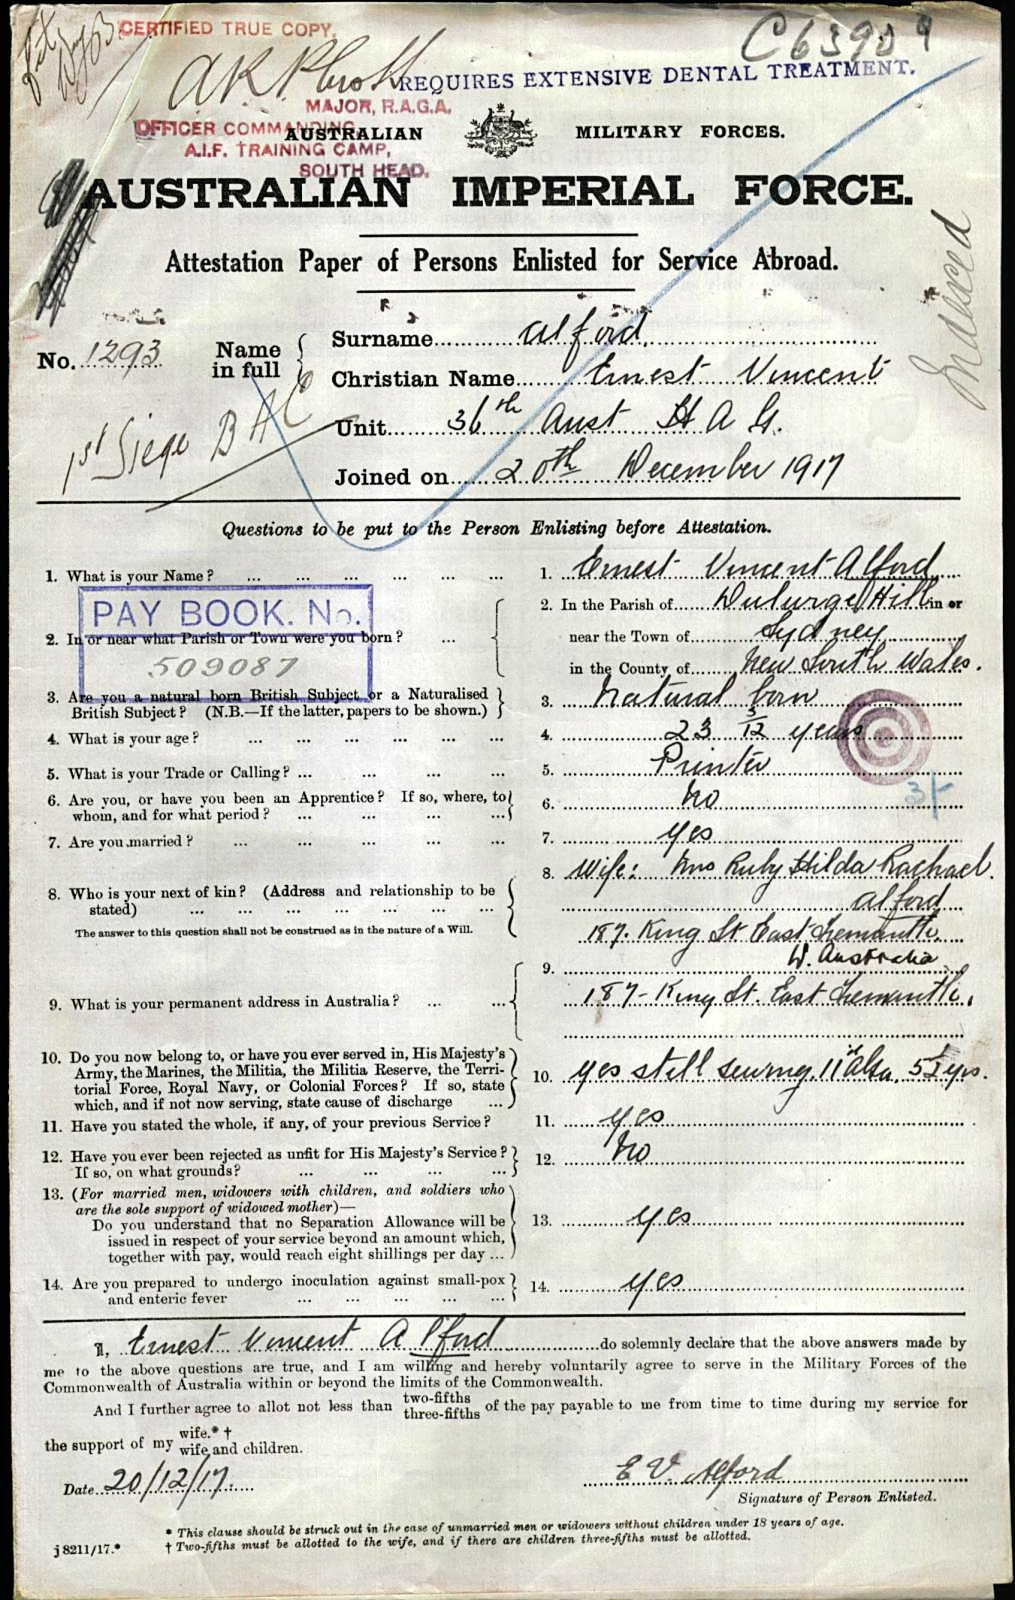 CERTIFIED TRUE COPY.
C65909
REQUIRES EXTENSIVE DENTAL TREATMENT.
MAJOR, R.A.G.A.
OFFICER COMMANDING
A.I.F. TRAINING CAMP,
SOUTH HEAD.
AUSTRALIAN MILITARY FORCES.
AUSTRALIAN IMPERIAL FORCE.
Attestation Paper of Persons Enlisted for Service Abroad.
Indexed
No. 1293
Name in full
Surname Alford.
Christian Name Ernest Vincent
Unit 36th Aust H A G.
1st Siege B A C
Joined on 20th December 1917
Questions to be put to the Person Enlisting before Attestation.
1. What is your Name? ... 1. Ernest Vincent Alford
PAY BOOK. No.
509087
2. In or near what Parish or Town were you born? ... 2. In the Parish of Hill in or
near the Town of Sydney
in the County of New South Wales.
3. Are you a natural born British Subject or a Naturalised
British Subject? (N.B.—If the latter, papers to be shown.) 3. Natural born
4. What is your age? ... 4. 23 3/12 years
5. What is your Trade or Calling? ... 5. Printer
6. Are you, or have you been an Apprentice? If so, where, to
whom, and for what period? ... 6. No
3/-
7. Are you married? ... 7. yes
8. Who is your next of kin? (Address and relationship to be
stated) ... 8. Wife: Mrs Ruby Hilda Rachael.
Alford
The answer to this question shall not be construed as in the nature of a Will.
187. King St East Fremantle,
W. Australia
9. What is your permanent address in Australia? ... 9. 187- King St. East Fremantle.
10. Do you now belong to, or have you ever served in, His Majesty's
Army, the Marines, the Militia, the Militia Reserve, the Terri-
torial Force, Royal Navy, or Colonial Forces? If so, state
which, and if not now serving, state cause of discharge ... 10. yes still serving. yrs.
11. Have you stated the whole, if any, of your previous Service? 11. yes
12. Have you ever been rejected as unfit for His Majesty's Service?
If so, on what grounds? ... 12. No
13. (For married men, widowers with children, and soldiers who
are the sole support of widowed mother)—
Do you understand that no Separation Allowance will be
issued in respect of your service beyond an amount which,
together with pay, would reach eight shillings per day ... 13. yes
14. Are you prepared to undergo inoculation against small-pox
and enteric fever ... 14. yes
I, Ernest Vincent Alford do solemnly declare that the above answers made by
me to the above questions are true, and I am willing and hereby voluntarily agree to serve in the Military Forces of the
Commonwealth of Australia within or beyond the limits of the Commonwealth.
And I further agree to allot not less than two-fifths three-fifths of the pay payable to me from time to time during my service for
the support of my wife.*† wife and children.
Date 20/12/17.
E V Alford
Signature of Person Enlisted.
* This clause should be struck out in the case of unmarried men or widowers without children under 18 years of age.
j 8211/17.* † Two-fifths must be allotted to the wife, and if there are children three-fifths must be allotted.